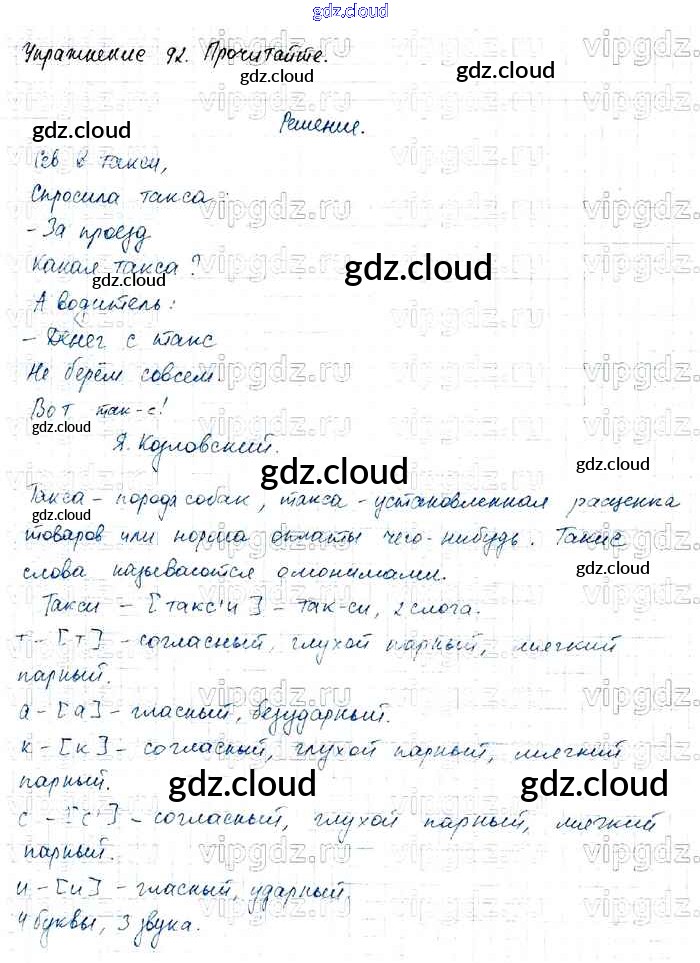 gdz.cloud
Упражнение 92. Прочитайте.
Решение.
Сев в такси,
Спросила такса:
- За проезд
Какая такса?
А водитель:
- Денег с такс
Не берём совсем.
Вот так-с!
Я. Козловский.
Такса - порода собак, такса - установленная расценка
товаров или норма оплаты чего-нибудь. Такие
слова называются омонимами.
Такси - [такс'и] - так-си, 2 слога.
т - [т] - согласный, глухой парный, мягкий
парный.
а - [а] - гласный, безударный.
к - [к] - согласный, глухой парный, мягкий
парный.
с - [с'] - согласный, глухой парный, мягкий
парный.
и - [и] - гласный, ударный.
4 буквы, 3 звука.